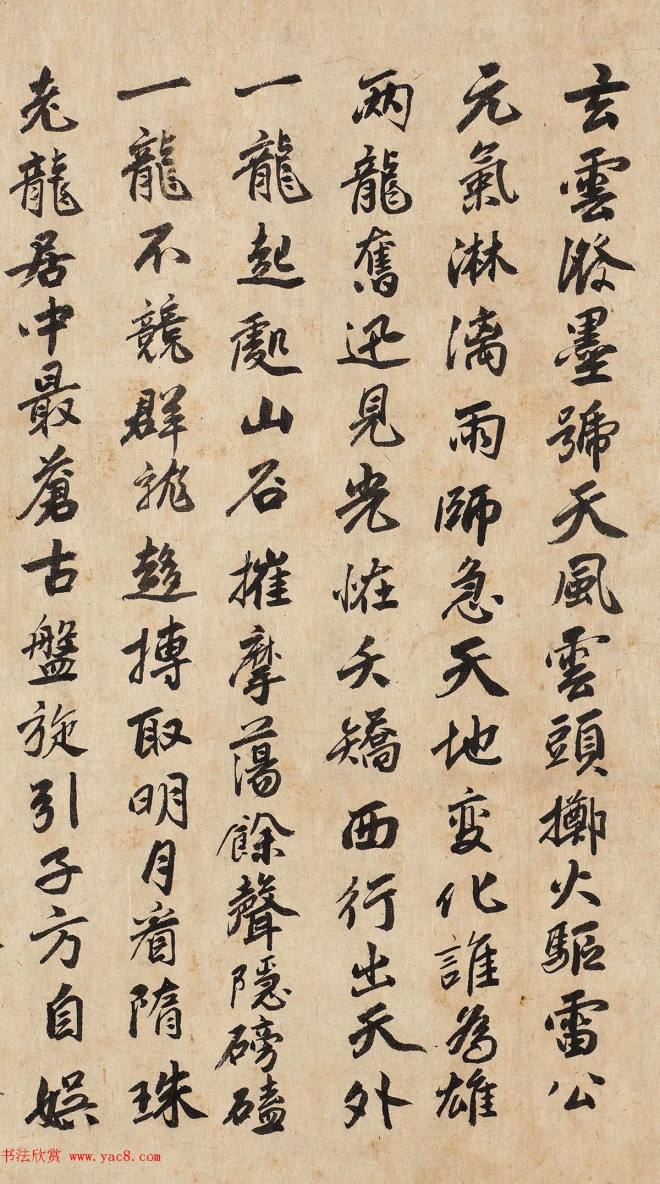 玄雲潑墨號天風雲頭擲火驅雷公
元氣淋漓雨師急天地變化誰為雄
兩龍奮迅見光恠夭矯西行出天外
一龍起處山石摧摩蕩餘聲隱磅磕
一龍不競群龍趨搏取明月看隋珠
老龍居中最蒼古盤旋引子方自娛
书法欣赏 www.yac8.com